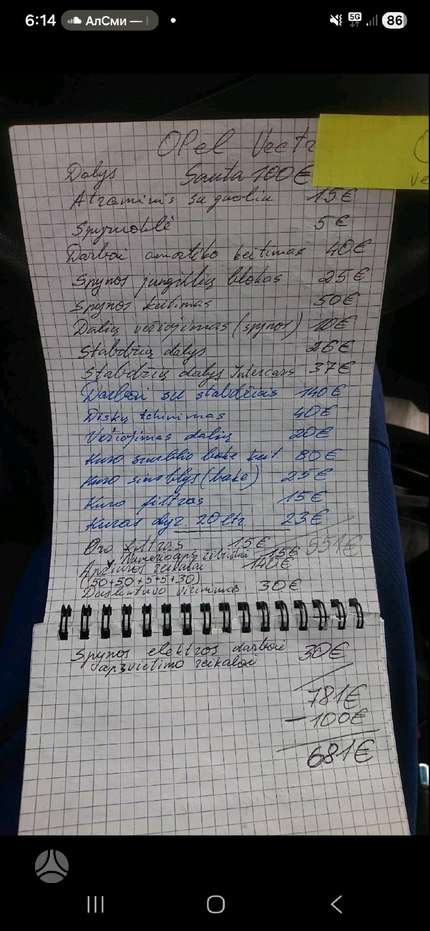 6:14 АлСми — 5G 86
Opel Vectr
Dalys Sauta 100€
Atraminis su guoliu 15€
Spyruoklė 5€
Darbai amortiko keitimas 40€
Spynos jungtukų blokas 25€
Spynos keitimas 50€
Dalių vežiojimas (spynos) 10€
Stabdžių dalys 26€
Stabdžių dalys Intercars 37€
Darbai su stabdžiais 140€
Diskų tekinimas 40€
Vežiojimas dalių 20€
Kuro siurblio bake keit 80€
Kuro siurblys (bake) 25€
Kuro filtras 15€
Kuras dyz 20 ltr 23€
Oro filtras 15€ 551€
15€
Apr reikalai 140€
(50+50+5+5+30)
Duslintuvo virinimas 30€
Spynos elektros darbai 30€
apšvietimo reikalai
781€
-100€
681€
ve